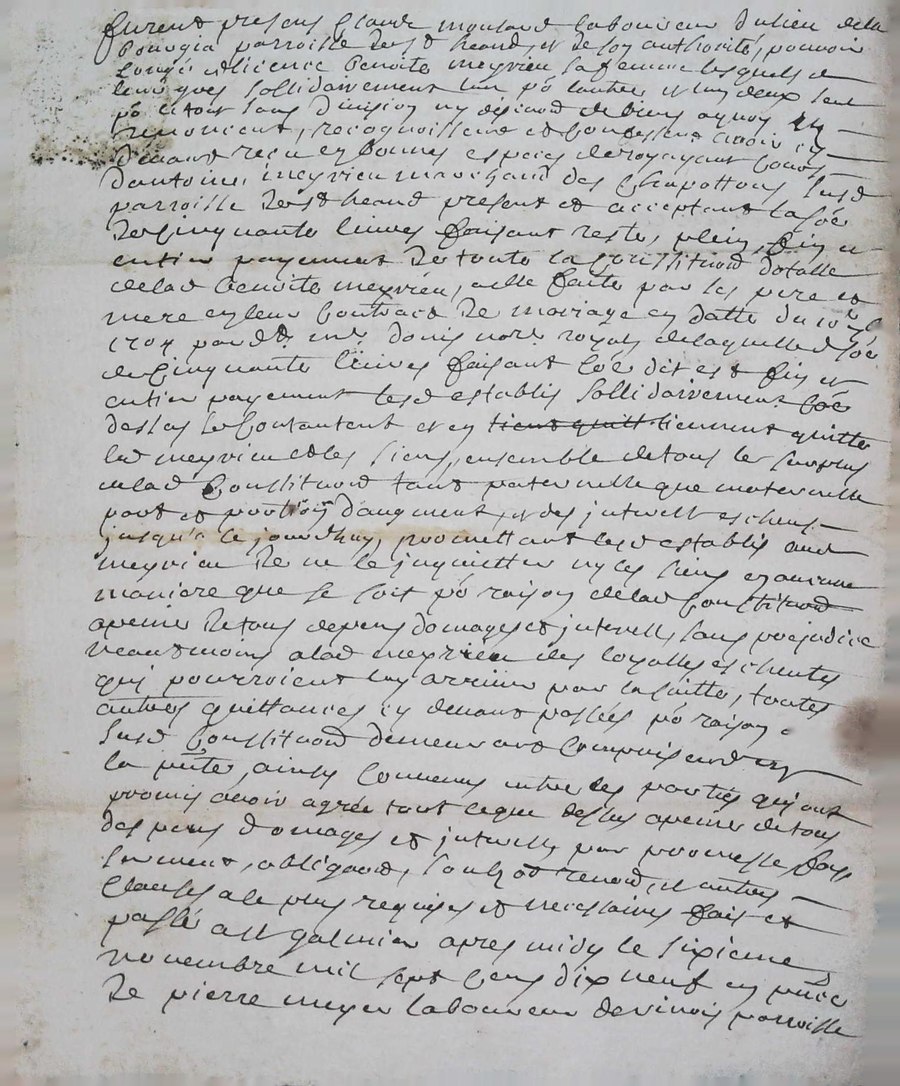 furent presens Claude moulard laboureur du lieu de la
parroisse de st heand, et de son authorité, pouvoir
congé et licence benoite meyrieu sa femme lesquels de
leurs grés sollidairement l'un pō l'autre et un deux seul
pō le tout sans division ny discution de biens a quoy ils
renoncent, recognoissent et confessent avoir cy
devant reçu en bonnes especes de roy ayant cours
d'antoine meyrieu marchand des Chapottons susd
parroisse de st heand present et acceptant la sōe
de cinquante livres faisant reste, plein, fin et
entier payement de toute la constituōn dotalle
de lad benoite meyrieu, a elle faite par les pere et
mere en leur contract de mariage en datte du
1704 par dt me donis nore royal de laquelle d sōe
de cinquante livres faisant cōe dit est fin et
entier payement lesd establis sollidairement cōe
dessus se contantent et en tient quitt tiennent quitte
led meyrieu et les siens, ensemble de tous les surplus
de lad constituōn tant paternelle que maternelle
part et portion d'augment, et des interest escheus
jusqu'a ce jourdhuy, promettant lesd establis aud
meyrieu de ne le inquietter ny les siens en aucune
maniere que se soit pō raison de lad constituōn
a peine de tous depens domages et interests, sans prejudice
neantmoins a lad meyrieu des loyalles escheutes
qui pourroient luy arriver par la suitte, toutes
autres quittances cy devant passées pō raison
susd constituōn demeurant comprises en
la pnte, ainsy convenu entre les parties qui ont
promis avoir agreé tout ce que dessus a peine de tous
despens domages et interests par promesse foys
serment, obligaōn, renoōn, et autres
clauses a le plus requises et necessaires fait et
passé a st galmier apres midy le sixieme
novembre mil sept cens dix neuf en pnce
de pierre meyer laboureur de parroisse